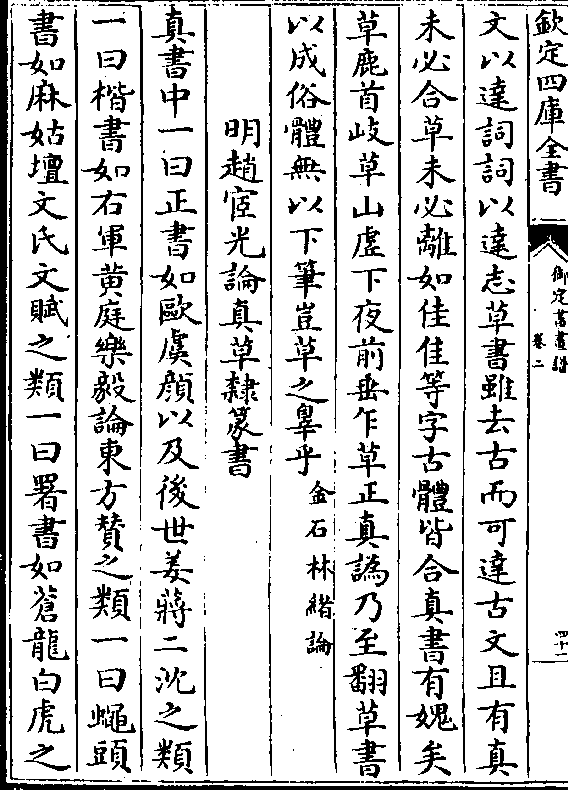 欽定四庫全書
御定書畫譜
卷二
四十二
文以達詞詞以達志草書雖去古而可達古文且有真
未必合草未必離如佳佳等字古體皆合真書有媿矣
草鹿首岐草山虛下夜前垂乍草正真譌乃至翻草書
以成俗體無以下筆豈草之辠乎
金石林緒論
明趙宧光論真草隸篆書
真書中一曰正書如歐虞顏以及後世姜蔣二沈之類
一曰楷書如右軍黄庭樂毅論東方贊之類一曰蠅頭
書如麻姑壇文氏文賦之類一曰署書如蒼龍白虎之